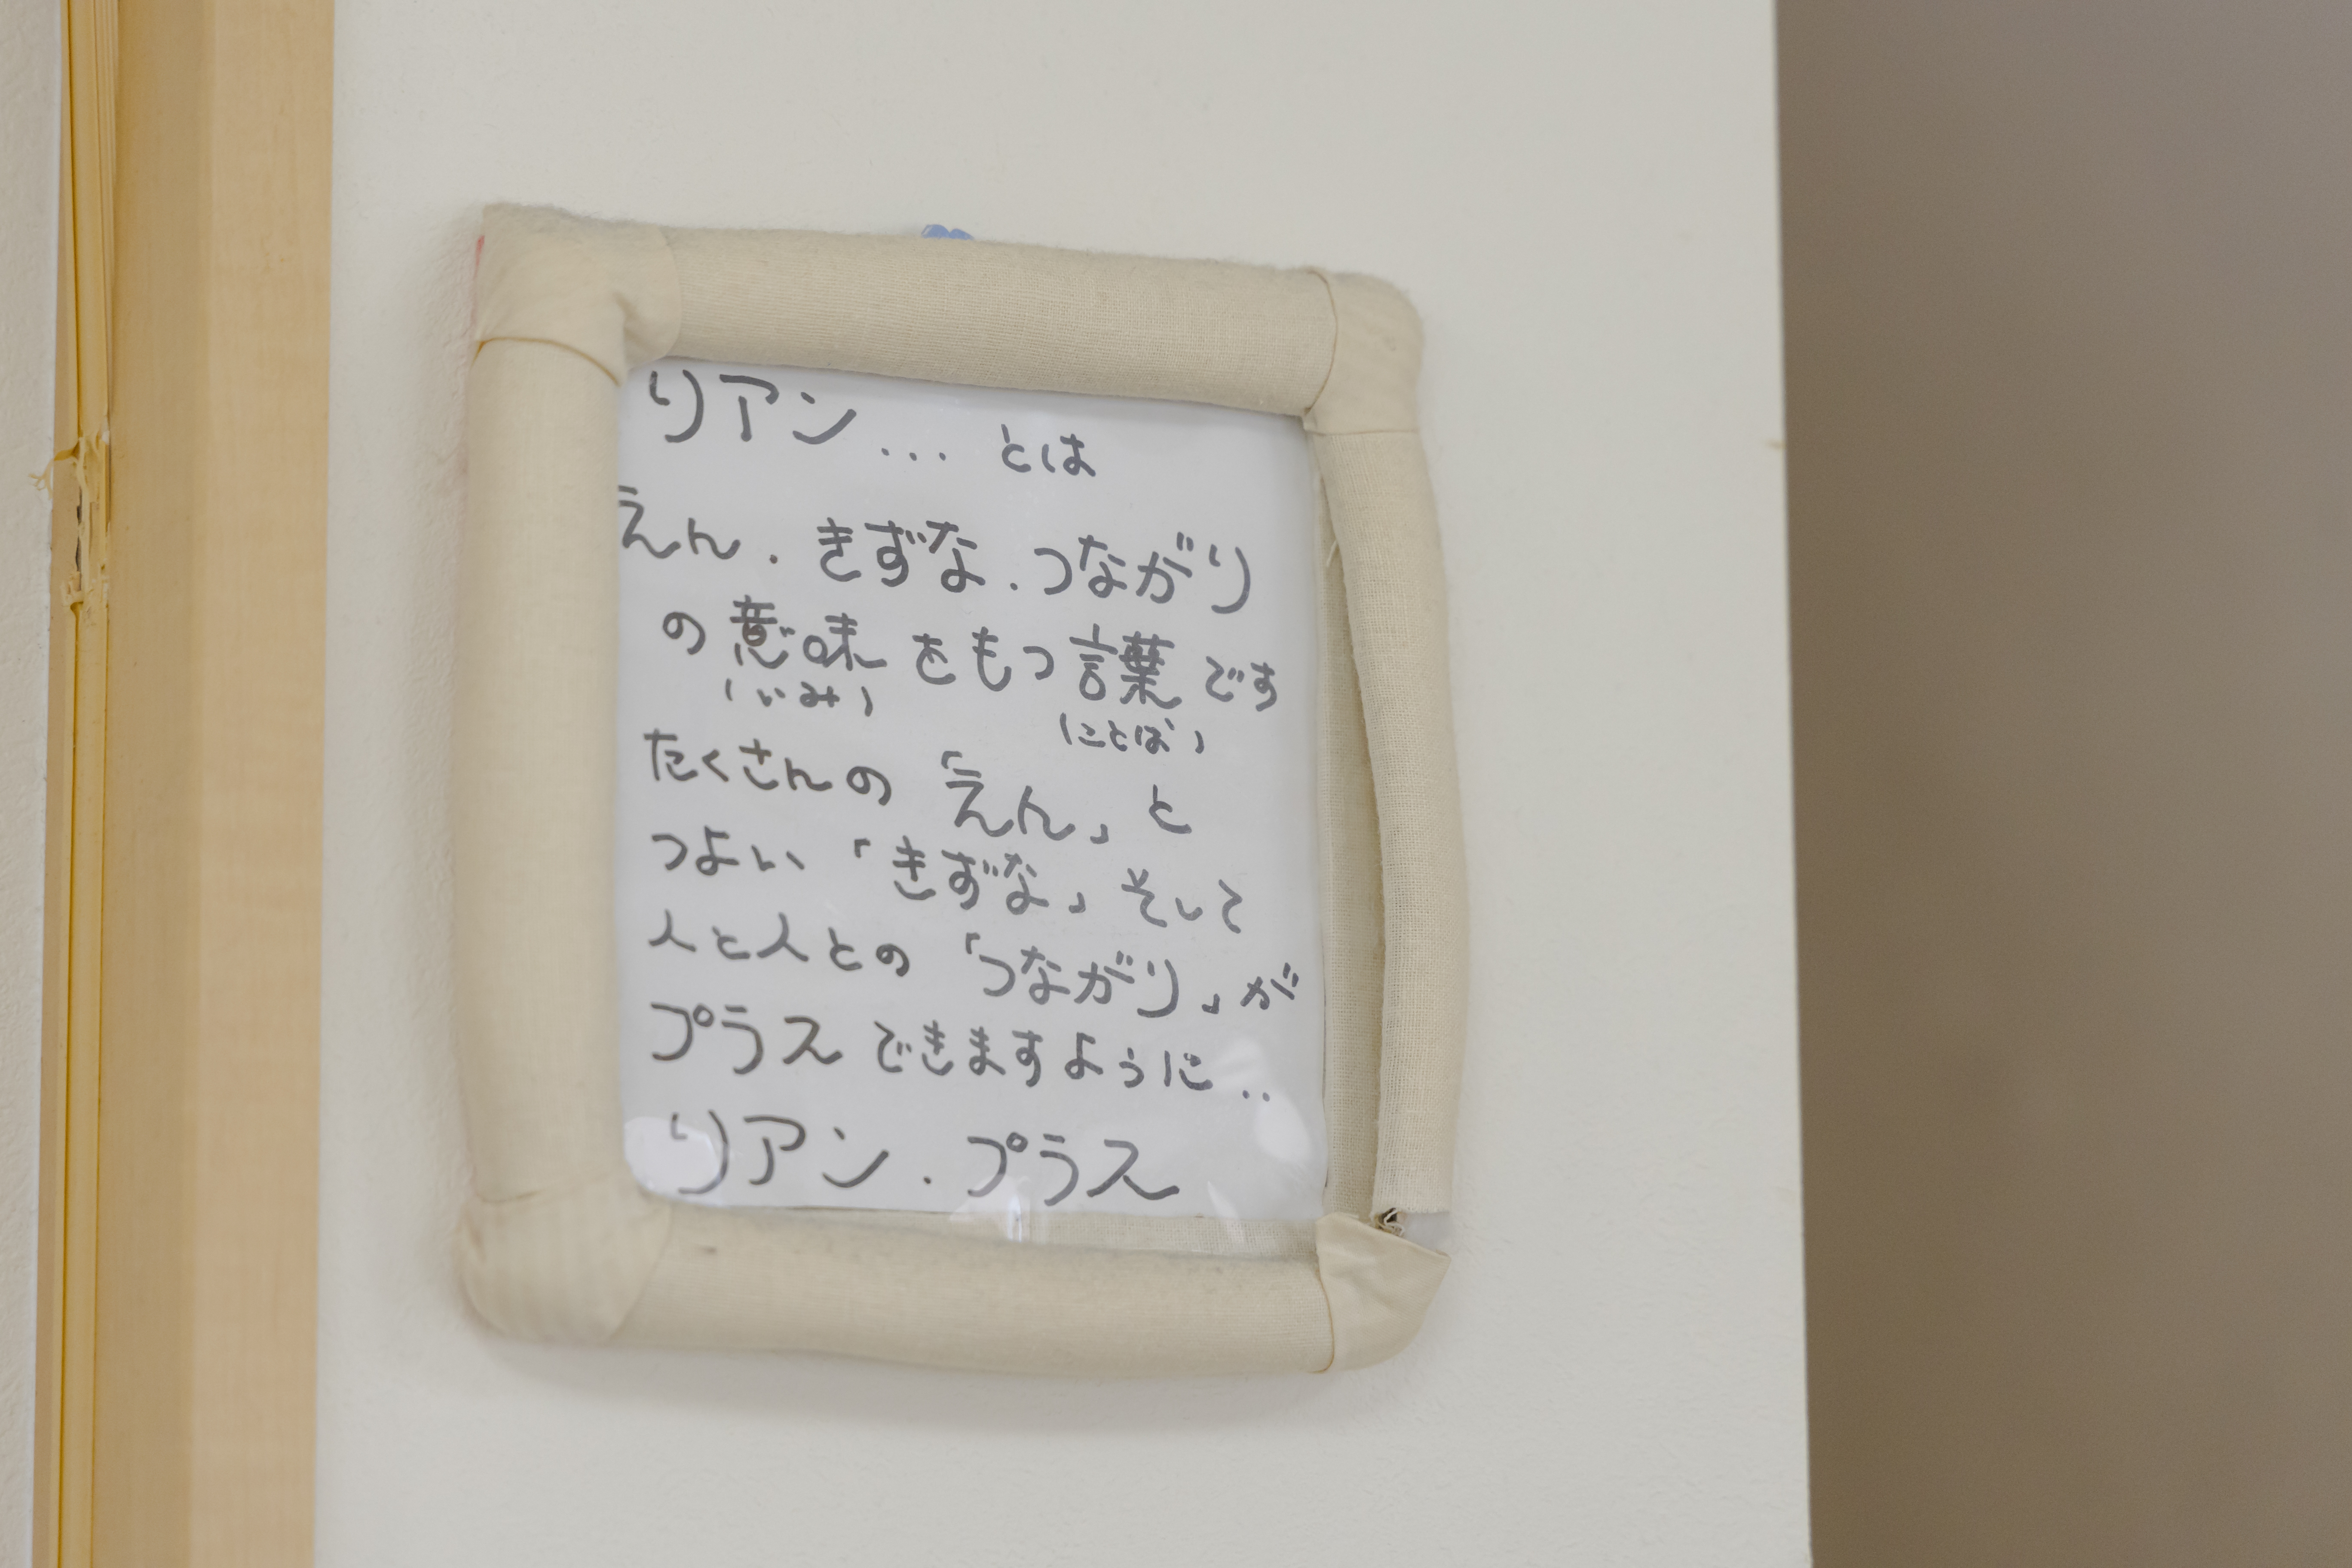 リアン... とは
えん . きずな . つながり
の意味をもつ言葉です
(いみ) (ことば)
たくさんの「えん」と
つよい「きずな」そして
人と人との「つながり」が
プラスできますように..
リアン . プラス